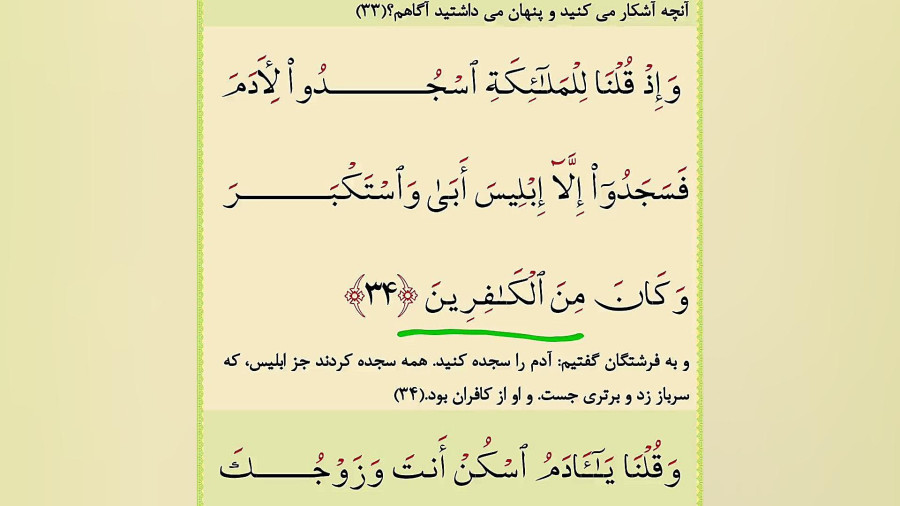 آنچه آشکار می کنید و پنهان می داشتید آگاهم؟(۳۳)
وَإِذْ قُلْنَا لِلْمَلَـٰٓئِكَةِ ٱسْجُـــدُوا۟ لِأَدَمَ
فَسَجَدُوٓا۟ إِلَّآ إِبْلِيسَ أَبَىٰ وَٱسْتَكْبَـــرَ
وَكَانَ مِنَ ٱلْكَـٰفِرِينَ ﴿۳۴﴾
و به فرشتگان گفتیم: آدم را سجده کنید. همه سجده کردند جز ابلیس، که
سرباز زد و برتری جست. و او از کافران بود.(۳۴)
وَقُلْنَا يَـٰٓـَٔادَمُ ٱسْكُنْ أَنتَ وَزَوْجُـــكَ